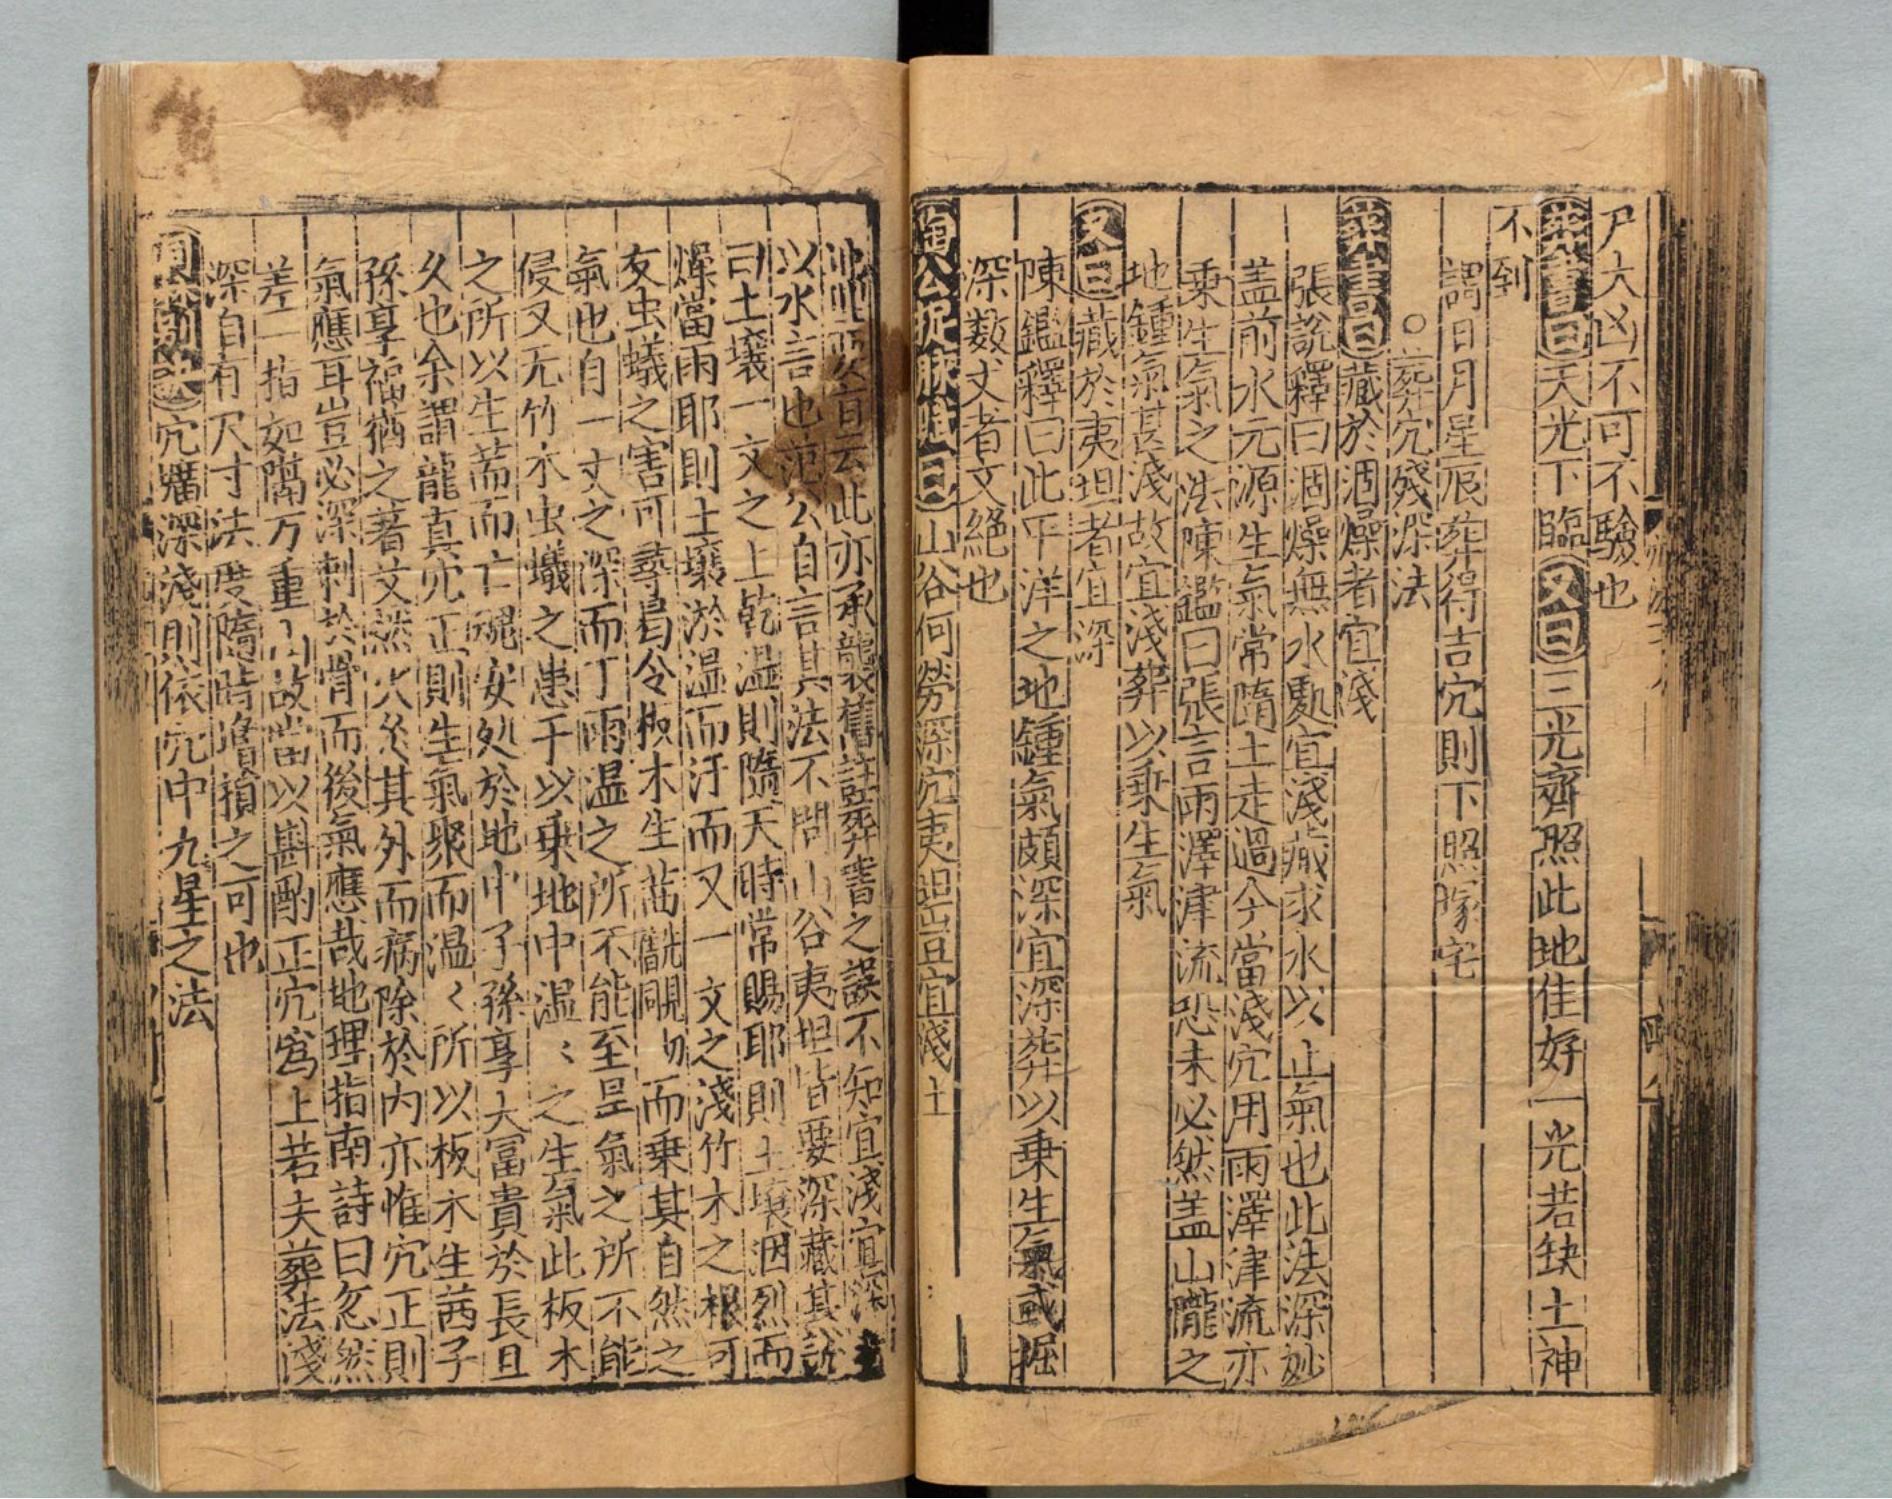 尸大凶不可不驗也
葬書曰天光下臨又曰三光齊照此地佳好一光若缺土神
不到
謂日月星辰葬得吉穴則下照塚宅
○葬穴殘深法
葬書曰藏於涸燥者宜淺
張說釋曰涸燥無水處宜淺藏求水以止氣也此法深妙
盖前水元源生氣常隨土走過今當淺穴用雨澤津流亦
乗生氣之法陳鑑曰張言雨澤津流恐未必然盖山隴之
地鍾氣甚淺故宜淺葬以乗生氣
又曰藏於夷坦者宜深
陳鑑釋曰此平洋之地鍾氣頗深宜深葬以乗生氣或掘
深数丈者文絕也
公 曰山谷何勞深穴夷坦豈宜淺土
云此亦承襲舊註葬書之誤不知宜淺宜深
以水言也范公自言其法不問山谷夷坦皆要深藏其說
曰土壤一文之上乾温則隨天時常賜耶則土壤洇烈而
燥當雨耶則土壤淤温而汙而又一文之淺竹木之根可
友虫蟻之害可尋曷令板木生菑 而乗其自然之
氣也自一丈之深而丁雨温之所不能至昰氣之所不能
侵又无竹木虫蟻之患于以乗地中温〻之生氣此板木
之所以生菑而亡魂安処於地中子孫享大富貴於長且
久也余謂龍真穴正則生氣聚而温〻所以板木生茜子
孫享福猶之著艾然火炙其外而病除於内亦惟穴正則
氣應耳豈必深刺於骨而後氣應哉地理指南詩曰忽然
差一指如隔万重山故當以斟酌正穴爲上若夫葬法淺
深自有尺寸法度隨時增損之可也
穴壙深淺則依穴中九星之法